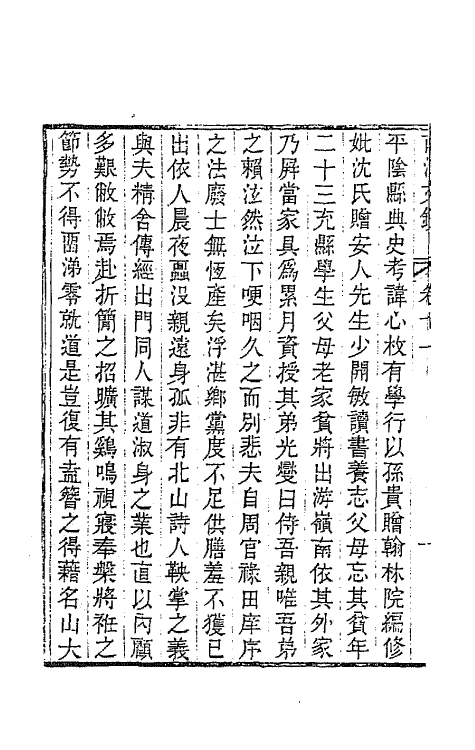 平陰縣典史考諱心枚有學行以孫貴贈翰林院編修
妣沈氏贈安人先生少開敏讀書養志父母忘其貧年
二十三充縣學生父母老家貧將出游嶺南依其外家
乃屏當家具爲累月資授其弟光燮曰侍吾親唯吾弟
之賴泣然泣下哽咽久之而別悲夫自周官祿田庠序
之法廢士無恆產矣浮湛鄉黨度不足供膳羞不獲已
出依人晨夜嚚沒親遠身孤非有北山詩人鞅掌之義
與夫精舍傳經出門同人謀道淑身之業也直以內顧
多艱怓怓焉赴折簡之招曠其鷄鳴視寢奉槃將袵之
節勢不得畱涕零就道是豈復有盍簪之得藉名山大